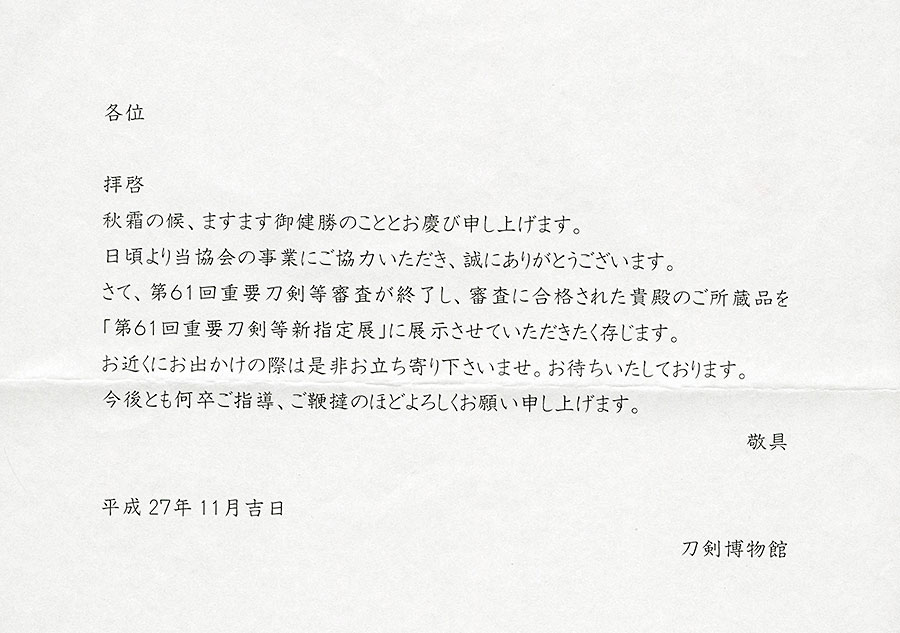 各位
拝啓
秋霜の候、ますます御健勝のこととお慶び申し上げます。
日頃より当協会の事業にご協力いただき、誠にありがとうございます。
さて、第61回重要刀剣等審査が終了し、審査に合格された貴殿のご所蔵品を
「第61回重要刀剣等新指定展」に展示させていただきたく存じます。
お近くにお出かけの際は是非お立ち寄り下さいませ。お待ちいたしております。
今後とも何卒ご指導、ご鞭撻のほどよろしくお願い申し上げます。
敬具
平成 27年 11月吉日
刀剣博物館